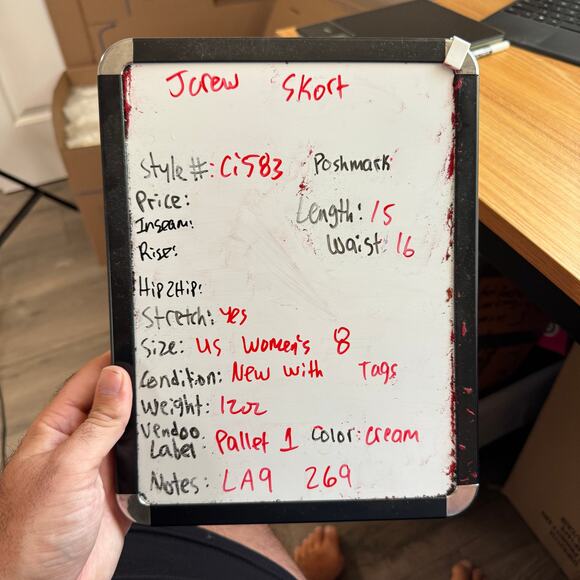 Jcrew Skort
Style #: Ci583 Poshmark
Price:
Length: 15
Inseam:
Waist 16
Rise:
Hip 2 Hip:
Stretch: yes
Size: US Women's 8
Condition: New with Tags
Weight: 12oz
Vendoo
Label: Pallet 1 Color: Cream
Notes: LA9 269